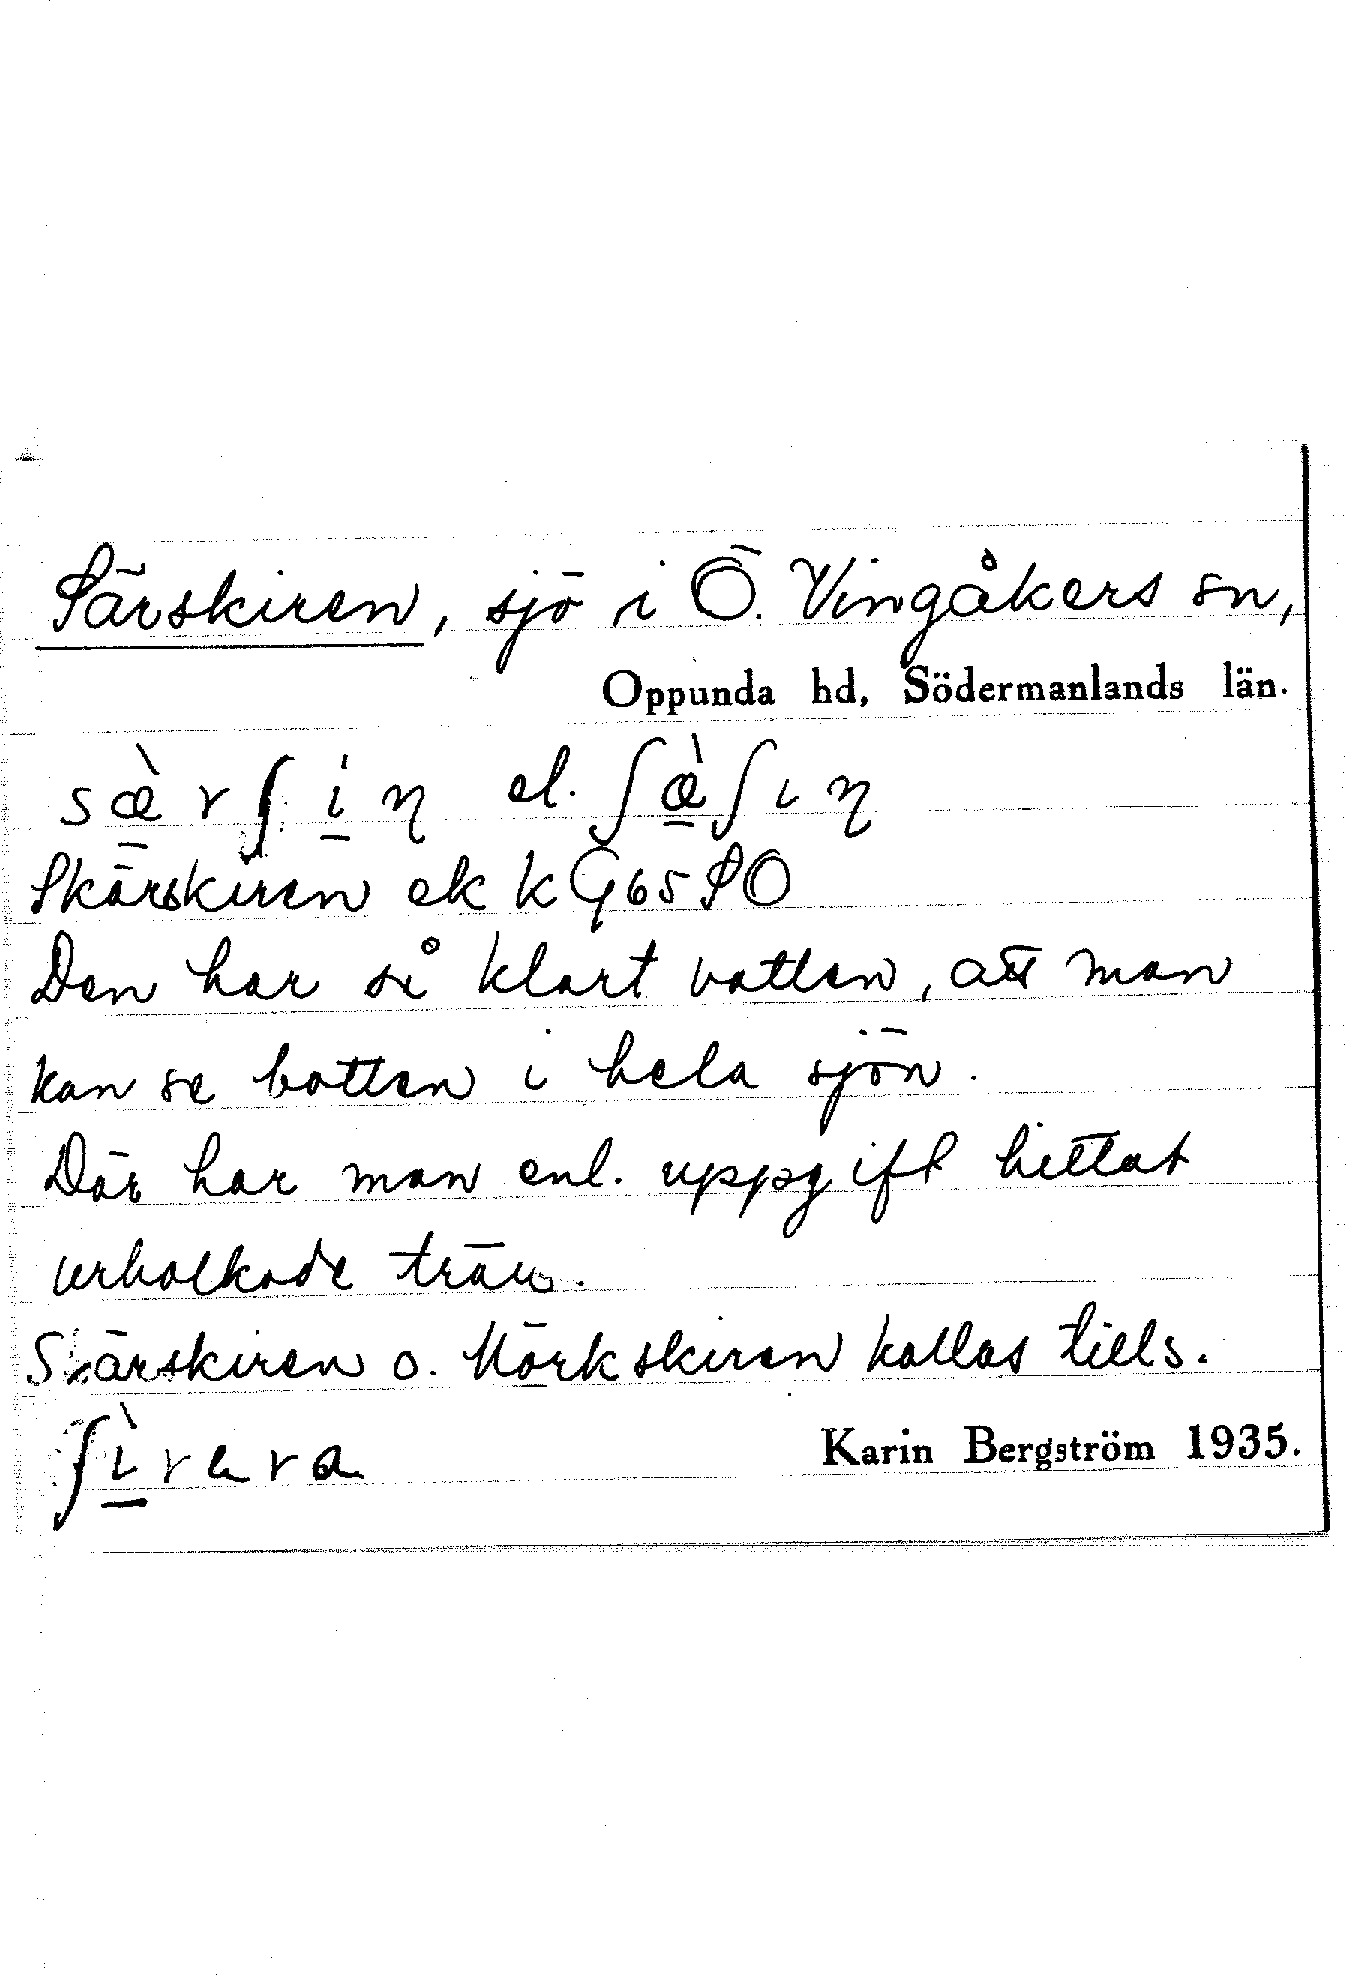 Särskiren, sjö i Ö. Vingåkers sn,
Oppunda hd, Södermanlands län.
sæ̀rʃiη el. ʃæ̀ʃıη
Skärskiren ek k G65SO
Den har så klart vatten, att man
kan se botten i hela sjön.
Där har man enl. uppgift hittat
urholkade träu.
Skärskiren o. Mörkskiren kallas tills.
ʃı̀rara
Karin Bergström 1935.